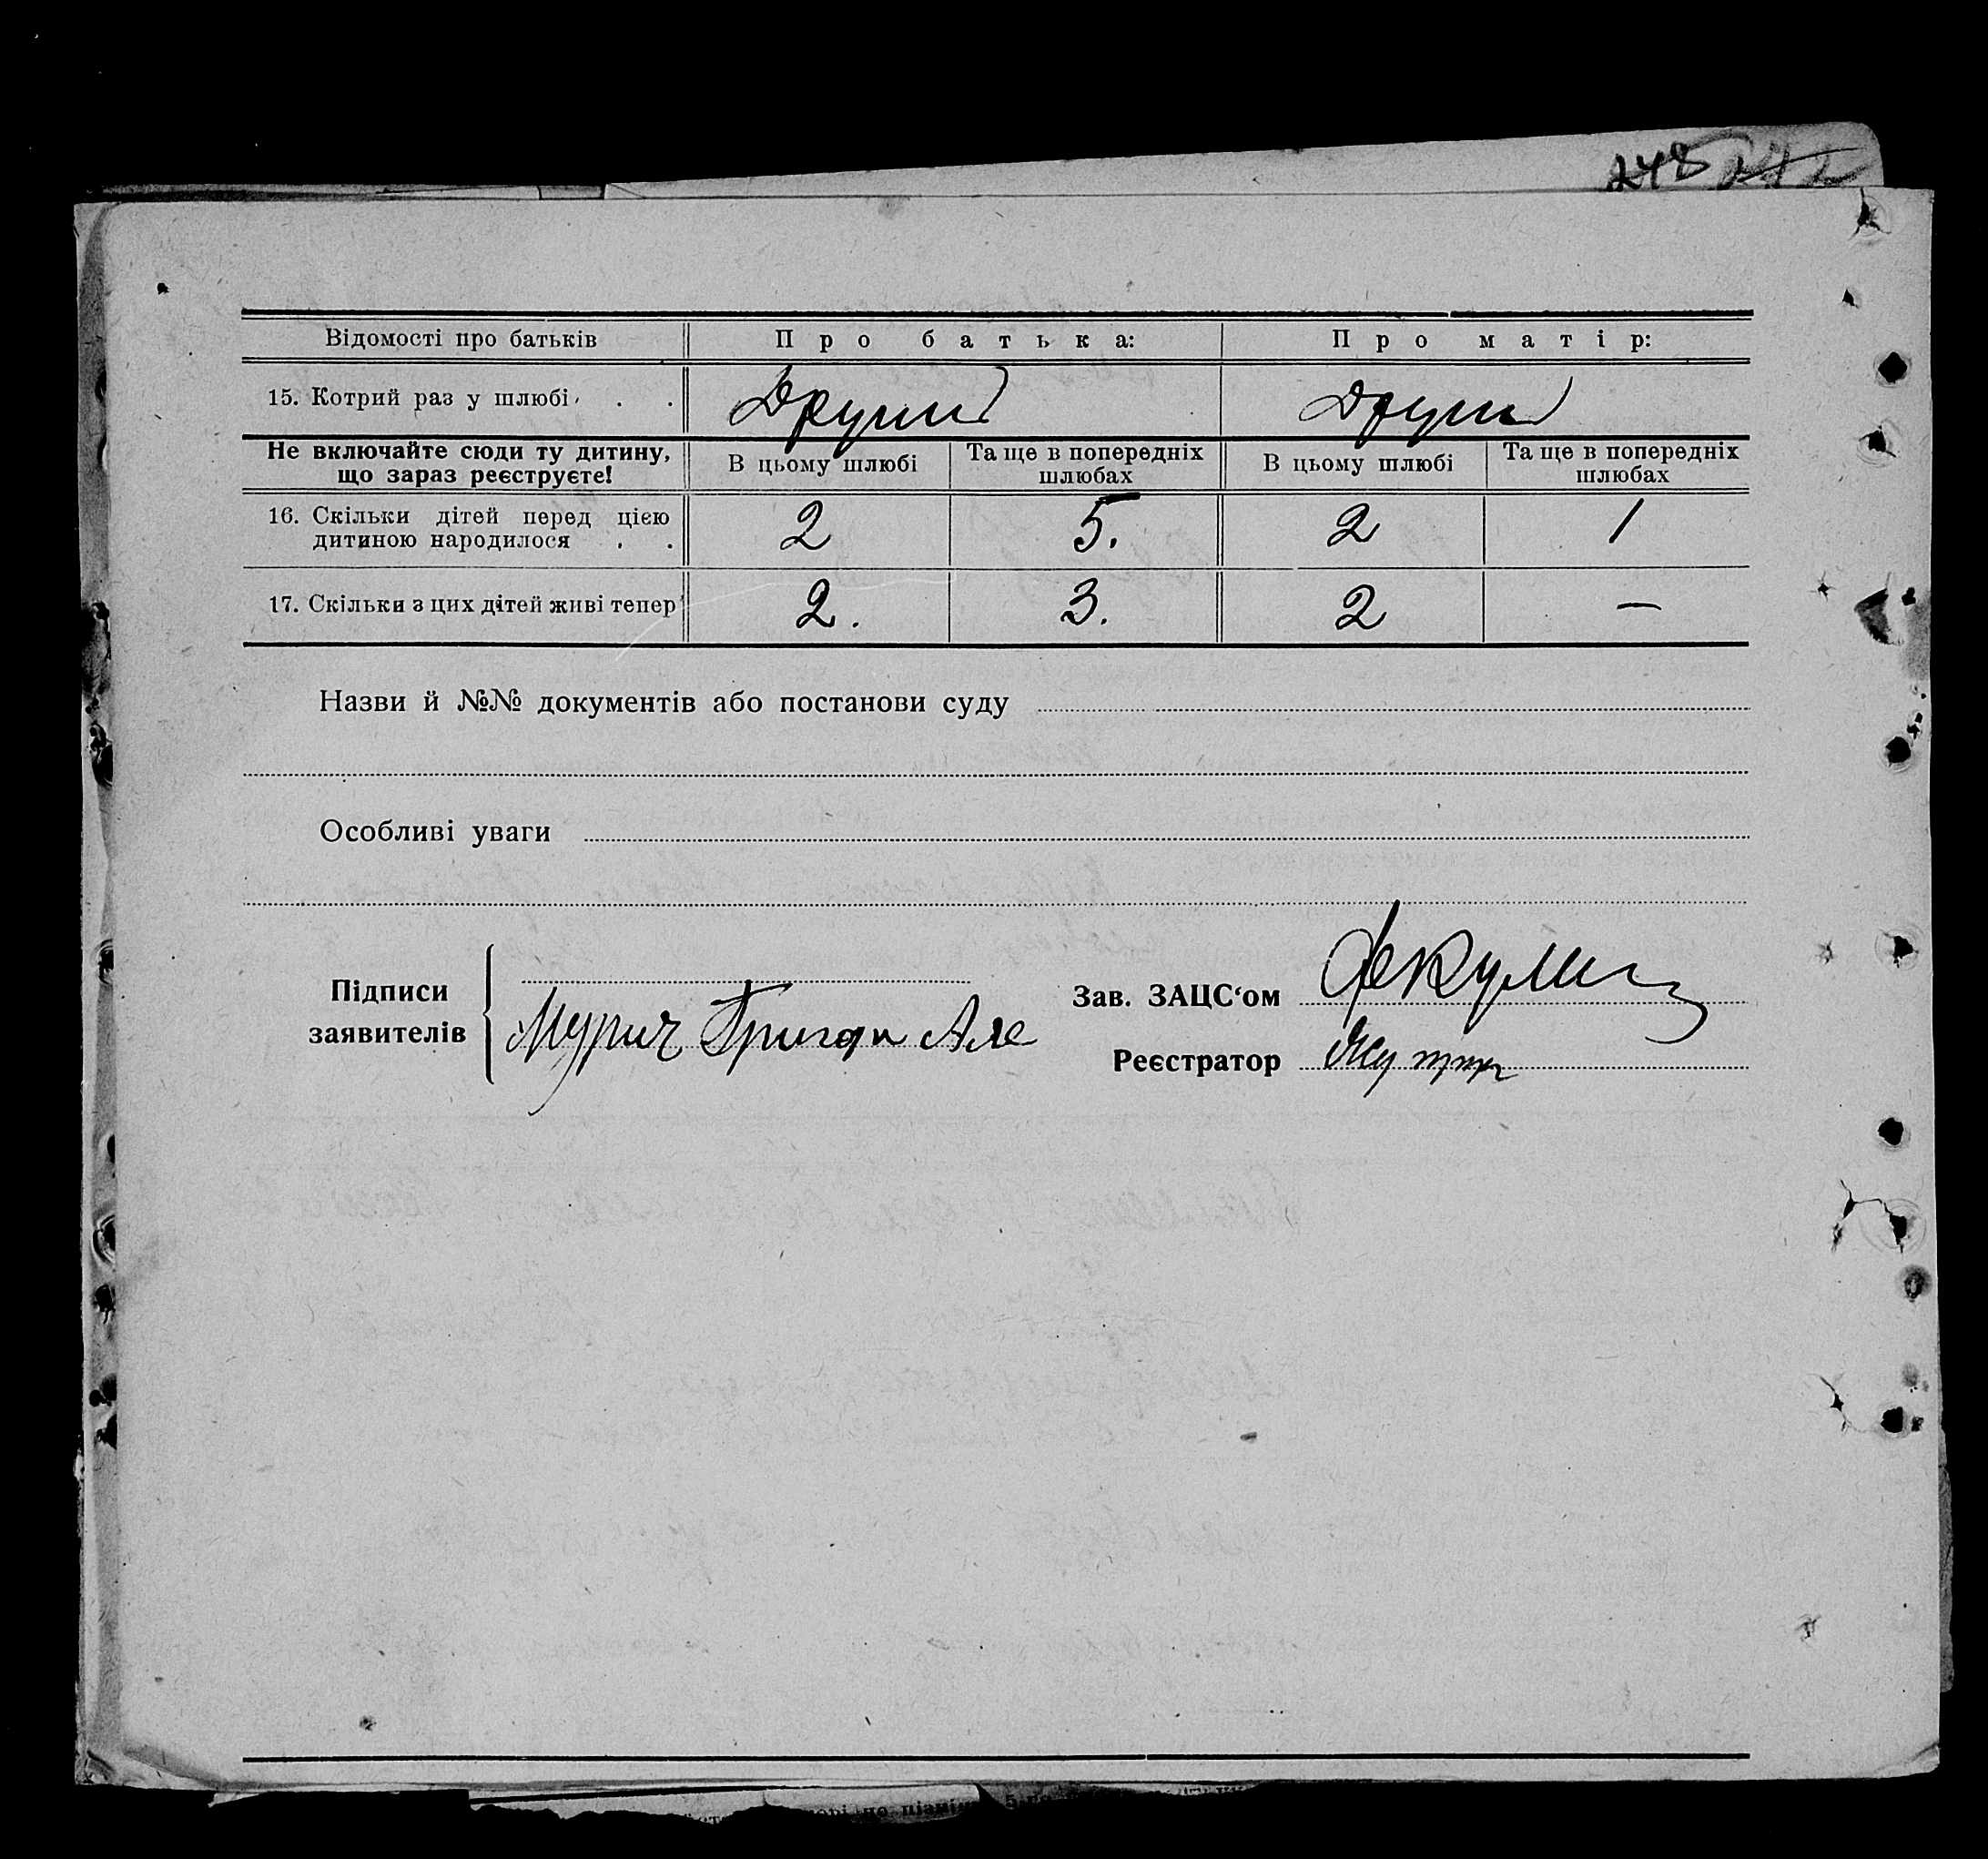 248
Відомості про батьків Про батька: Про матір:
15. Котрий раз у шлюбі . . Другий Другий
Не включайте сюди ту дитину, що зараз реєструєте! В цьому шлюбі Та ще в попередніх шлюбах В цьому шлюбі Та ще в попередніх шлюбах
16. Скільки дітей перед цією дитиною народилося . . 2 5. 2 1
17. Скільки з цих дітей живі тепер 2. 3. 2 —
Назви й №№ документів або постанови суду
Особливі уваги
Підписи заявителів
Мурич Григори Але
Зав. ЗАЦС‘ом
Реєстратор